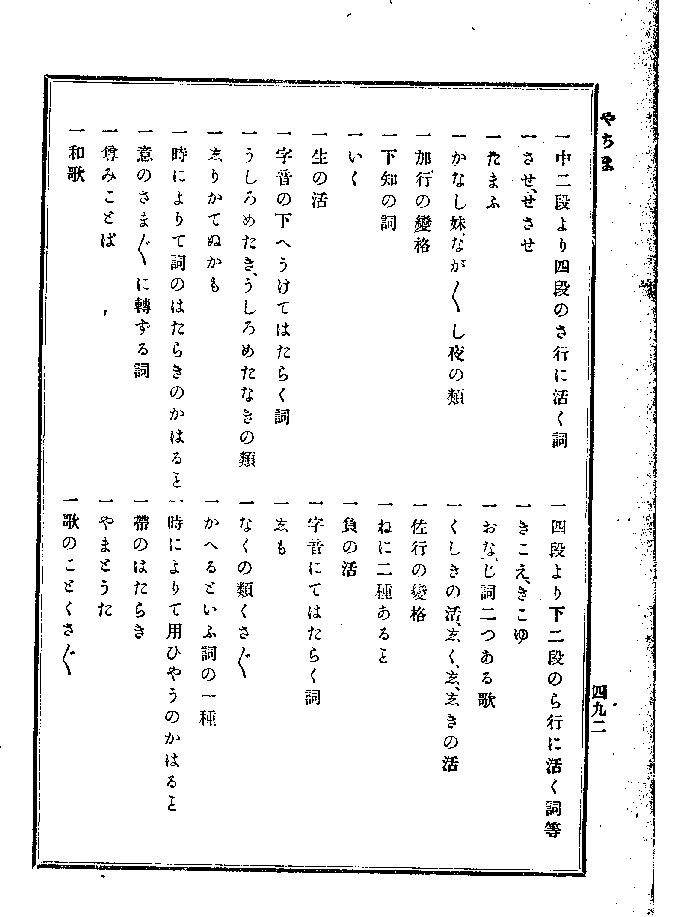 やちま
四九二
一中二段より四段のさ行に活く詞
一四段より下二段のら行に活く詞等
一させ、せさせ
一きこえ、きこゆ
一たまふ
一おなじ詞二つある歌
一かなし妹なが〱し夜の類
一くしきの活、しく、し、しきの活
一加行の變格
一佐行の變格
一下知の詞
一ねに二種あること
一いく
一負の活
一生の活
一字音にてはたらく詞
一字音の下へうけてはたらく詞
一しも
一うしろめたき、うしろめたなきの類
一なくの類くさ〲
一しりかてぬかも
一かへるといふ詞の一種
一時によりて詞のはたらきのかはること
一時によりて用ひやうのかはること
一意のさま〲に轉ずる詞
一帶のはたらき
一尊みことば
一やまとうた
一和歌
一歌のことくさ〲